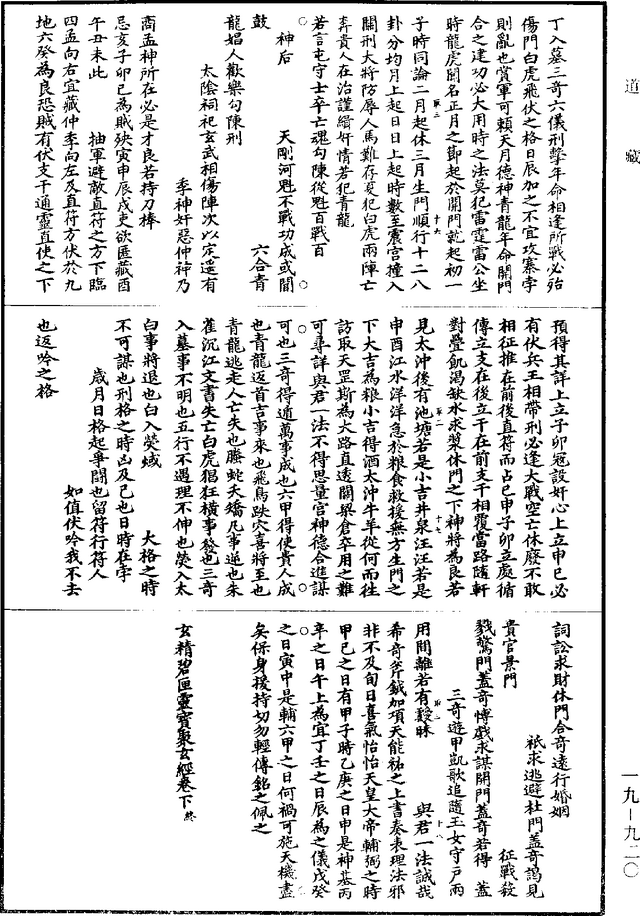 道藏
丁入墓三奇六儀刑擊年命相逢所戰必殆
傷門白虎飛伏之格日辰加之不宜攻寨孛
則亂也賞軍可賴天月德神青龍年命開門
合之建功必大用時之法莫犯雷霆雷公坐
時龍虎關名正月之節起於開門就起初一
子時同論二月起休三月生門順行十二八
卦分均月上起日日上起時數至震宮撞入
關刑大將防辱人馬難存夏犯白虎兩陣亡
奔貴人在治謹緝奸情若犯青龍
若言屯守士卒亡魂勾陳從魁百戰百
神后
天剛河魁不戰功成或閉
鼓
六合青
龍娼人歡樂勾陳刑
太陰祠祀玄武相傷陣次以定還有
季神奸惡仲神乃
商孟神所在必是才良若持刀棒
忌亥子卯巳為賊殃寅申辰戌吏欲匿藏酉
午丑未此
抽軍避敵直符之方下臨
四孟向右宜藏仲季向左及直符方伏於九
地六癸為良恐賊有伏支干通靈直使之下
預得其詳上立子卯寇設奸心上立申巳必
有伏兵王相帶刑必逢大戰空亡休廢不敢
相征推在前後直符而占巳申子卯立處循
傳立支在後立干在前支干相覆當路隨軒
對壘飢渴缺水求漿休門之下神將為良若
見太沖後有池塘若是小吉井泉汪汪若是
申酉江水洋洋急於粮食救援無方生門之
下大吉為粮小吉得酒太沖牛羊從何而往
訪取天罡斯為大路直透關梁倉卒用之難
可尋詳與君一法不得思量官神德合進謀
可也三奇得適萬事成也六甲得使貴人成
也青龍返首吉事來也飛鳥跌穴喜將至也
青龍逃走人亡失也螣蛇夭矯凡事逆也朱
雀沉江文書失亡白虎猖狂橫事發也三奇
入墓事不明也五行不遇理不伸也熒入太
白事將退也白入熒域
大格之時
不可謀也刑格之時凶及己也日時在孛
歲月日格起爭鬪也留符行符人
如值伏吟我不去
也返吟之格
詞訟求財休門合奇遠行婚姻
祇求逃避杜門蓋奇謁見
貴官景門
征戰殺
戮驚門蓋奇博戲求謀開門蓋奇若得
蓋
三奇遊甲凱歌追隨玉女守戶兩
用間離若有靉昧
與君一法誠哉
希奇斧鉞加項天能祐之上書奏表理法邪
非不及旬日喜氣怡怡天皇大帝輔弼之時
甲己之日有甲子時乙庚之日申是神基丙
辛之日午上為宜丁壬之日辰為之儀戊癸
之日寅中是輔六甲之日何禍可施天機盡
矣保身援持切勿輕傳銘之佩之
玄精碧匣靈寶聚玄經卷下
一九-九二〇